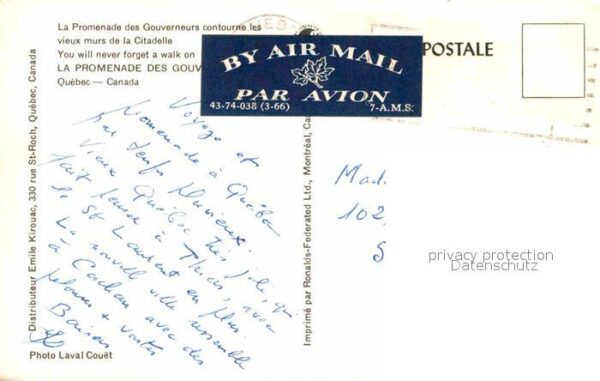 La Promenade des Gouverneurs contourne les
vieux murs de la Citadelle
You will never forget a walk on
LA PROMENADE DES GOUV
Québec — Canada
BY AIR MAIL
PAR AVION
43-74-038 (3-66) 7-A.M.S.
POSTALE
Distributeur Emile Kirouac, 330 rue St-Roch, Québec, Canada
Voyage et
promenade à Québec
par temps pluvieux.
Vieux Québec très joli, qui
fait penser à
le St Laurent en plus.
La nouvelle ville ressemble
à Cachan avec des
pelouses + vastes
Baisers
Photo Laval Couët
Imprimé par Ronalds-Federated Ltd., Montréal, Ca
Mad.
102,
S
privacy protection
Datenschutz